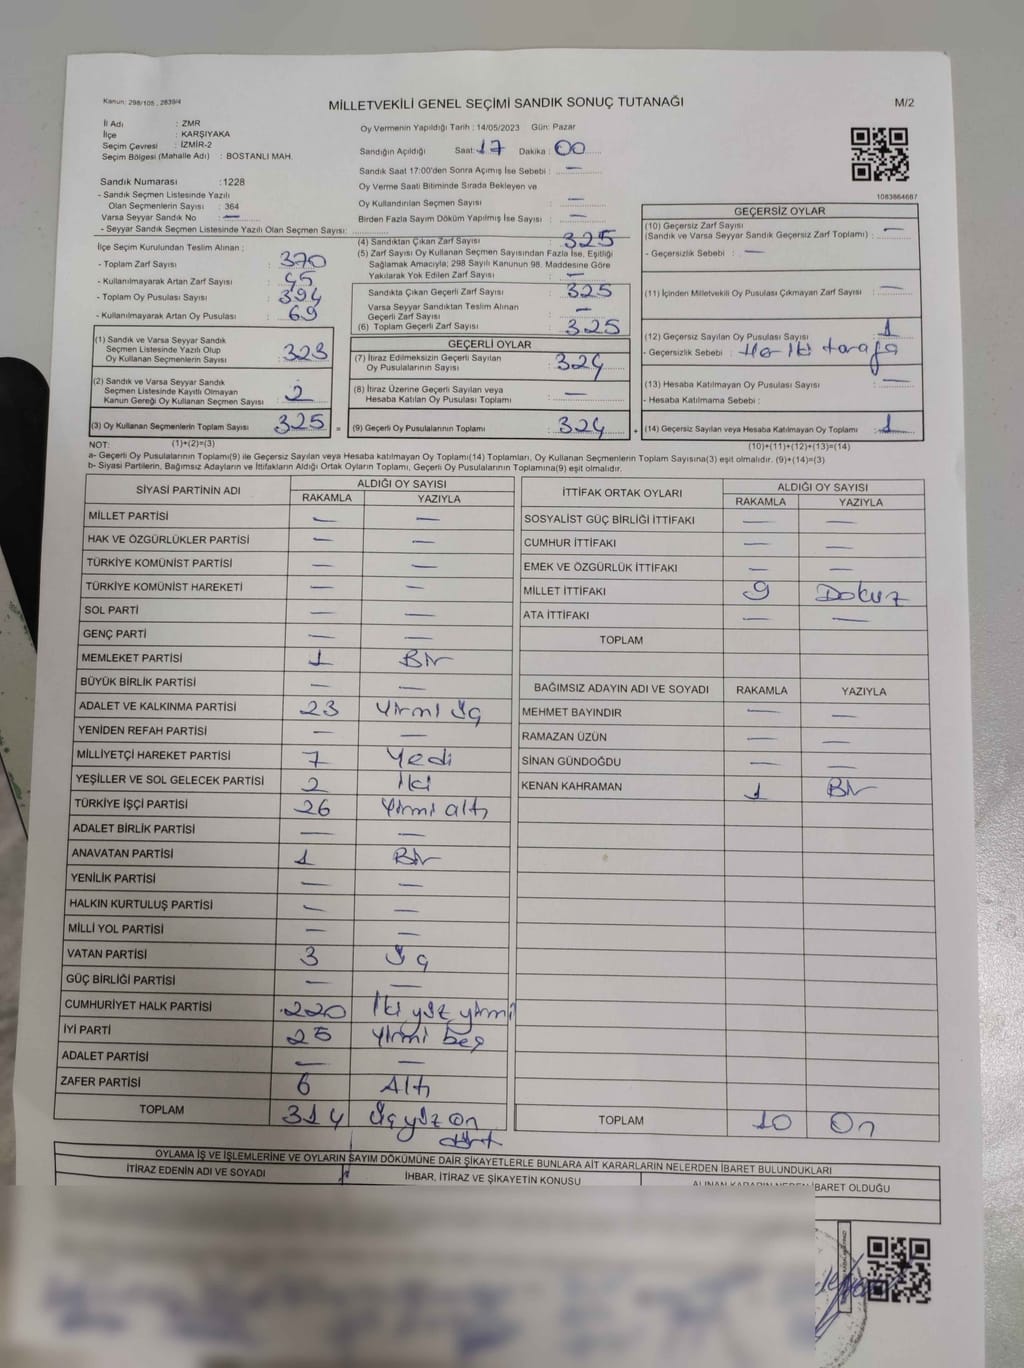 Kanun: 298/105 , 2839/4
MİLLETVEKİLİ GENEL SEÇİMİ SANDIK SONUÇ TUTANAĞI
M/2
İl Adı : ZMR
İlçe : KARŞIYAKA
Seçim Çevresi : İZMİR-2
Seçim Bölgesi (Mahalle Adı) : BOSTANLI MAH.
Sandık Numarası :1228
- Sandık Seçmen Listesinde Yazılı
Olan Seçmenlerin Sayısı : 364
Varsa Seyyar Sandık No : —
- Seyyar Sandık Seçmen Listesinde Yazılı Olan Seçmen Sayısı:
Oy Vermenin Yapıldığı Tarih : 14/05/2023 Gün: Pazar
Sandığın Açıldığı Saat: 17 Dakika : 00
Sandık Saat 17:00'den Sonra Açımış İse Sebebi : —
Oy Verme Saati Bitiminde Sırada Bekleyen ve
Oy Kullandırılan Seçmen Sayısı : —
Birden Fazla Sayım Döküm Yapılmış İse Sayısı : —
1083864687
İlçe Seçim Kurulundan Teslim Alınan :
- Toplam Zarf Sayısı : 370
- Kullanılmayarak Artan Zarf Sayısı : 45
- Toplam Oy Pusulası Sayısı : 394
- Kullanılmayarak Artan Oy Pusulası : 69
(1) Sandık ve Varsa Seyyar Sandık
Seçmen Listesinde Yazılı Olup
Oy Kullanan Seçmenlerin Sayısı : 323
(2) Sandık ve Varsa Seyyar Sandık
Seçmen Listesinde Kayıtlı Olmayan
Kanun Gereği Oy Kullanan Seçmen Sayısı : 2
(3) Oy Kullanan Seçmenlerin Toplam Sayısı : 325 =
(4) Sandıktan Çıkan Zarf Sayısı : 325
(5) Zarf Sayısı Oy Kullanan Seçmen Sayısından Fazla İse, Eşitliği
Sağlamak Amacıyla; 298 Sayılı Kanunun 98. Maddesine Göre
Yakılarak Yok Edilen Zarf Sayısı : —
Sandıkta Çıkan Geçerli Zarf Sayısı : 325
Varsa Seyyar Sandıktan Teslim Alınan
Geçerli Zarf Sayısı : —
(6) Toplam Geçerli Zarf Sayısı : 325
GEÇERLİ OYLAR
(7) İtiraz Edilmeksizin Geçerli Sayılan
Oy Pusulalarının Sayısı : 324
(8) İtiraz Üzerine Geçerli Sayılan veya
Hesaba Katılan Oy Pusulası Toplamı : —
(9) Geçerli Oy Pusulalarının Toplamı : 324 +
GEÇERSİZ OYLAR
(10) Geçersiz Zarf Sayısı
(Sandık ve Varsa Seyyar Sandık Geçersiz Zarf Toplamı) : —
- Geçersizlik Sebebi : —
(11) İçinden Milletvekili Oy Pusulası Çıkmayan Zarf Sayısı : —
(12) Geçersiz Sayılan Oy Pusulası Sayısı : 1
- Geçersizlik Sebebi : Her iki tarafa
(13) Hesaba Katılmayan Oy Pusulası Sayısı : —
- Hesaba Katılmama Sebebi :
(14) Geçersiz Sayılan veya Hesaba Katılmayan Oy Toplamı : 1
NOT: (1)+(2)=(3) (10)+(11)+(12)+(13)=(14)
a- Geçerli Oy Pusulalarının Toplamı(9) ile Geçersiz Sayılan veya Hesaba katılmayan Oy Toplamı(14) Toplamları, Oy Kullanan Seçmenlerin Toplam Sayısına(3) eşit olmalıdır. (9)+(14)=(3)
b- Siyasi Partilerin, Bağımsız Adayların ve İttifakların Aldığı Ortak Oyların Toplamı, Geçerli Oy Pusulalarının Toplamına(9) eşit olmalıdır.
SİYASİ PARTİNİN ADI ALDIĞI OY SAYISI
RAKAMLA YAZIYLA
MİLLET PARTİSİ — —
HAK VE ÖZGÜRLÜKLER PARTİSİ — —
TÜRKİYE KOMÜNİST PARTİSİ — —
TÜRKİYE KOMÜNİST HAREKETİ — —
SOL PARTİ — —
GENÇ PARTİ — —
MEMLEKET PARTİSİ 1 Bir
BÜYÜK BİRLİK PARTİSİ — —
ADALET VE KALKINMA PARTİSİ 23 Yirmi üç
YENİDEN REFAH PARTİSİ — —
MİLLİYETÇİ HAREKET PARTİSİ 7 Yedi
YEŞİLLER VE SOL GELECEK PARTİSİ 2 İki
TÜRKİYE İŞÇİ PARTİSİ 26 Yirmi altı
ADALET BİRLİK PARTİSİ — —
ANAVATAN PARTİSİ 1 Bir
YENİLİK PARTİSİ — —
HALKIN KURTULUŞ PARTİSİ — —
MİLLİ YOL PARTİSİ — —
VATAN PARTİSİ 3 Üç
GÜÇ BİRLİĞİ PARTİSİ — —
CUMHURİYET HALK PARTİSİ 220 İki yüz yirmi
İYİ PARTİ 25 Yirmi beş
ADALET PARTİSİ — —
ZAFER PARTİSİ 6 Altı
TOPLAM 314 Üç yüz on
dört
İTTİFAK ORTAK OYLARI ALDIĞI OY SAYISI
RAKAMLA YAZIYLA
SOSYALİST GÜÇ BİRLİĞİ İTTİFAKI — —
CUMHUR İTTİFAKI — —
EMEK VE ÖZGÜRLÜK İTTİFAKI — —
MİLLET İTTİFAKI 9 Dokuz
ATA İTTİFAKI — —
TOPLAM
BAĞIMSIZ ADAYIN ADI VE SOYADI RAKAMLA YAZIYLA
MEHMET BAYINDIR — —
RAMAZAN ÜZÜN — —
SİNAN GÜNDOĞDU — —
KENAN KAHRAMAN 1 Bir
TOPLAM 10 On
OYLAMA İŞ VE İŞLEMLERİNE VE OYLARIN SAYIM DÖKÜMÜNE DAİR ŞİKAYETLERLE BUNLARA AİT KARARLARIN NELERDEN İBARET BULUNDUKLARI
İTİRAZ EDENİN ADI VE SOYADI İHBAR, İTİRAZ VE ŞİKAYETİN KONUSU ALINAN KARARIN NEDEN İBARET OLDUĞU